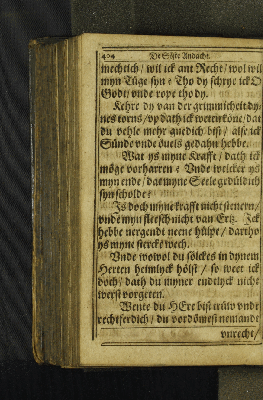 404 De Söste Andacht.
mechtich / wil ick ant Recht / wol wil
myn Tüge syn? Tho dy schrye ick O
Godt / vnde rope tho dy.
Kehre dy van der grimmicheit dy-
nes torns / vp dath ick weten köne / dat
du vehle mehr gnedich bist / alse ick
Sünde vnde öuels gedahn hebbe.
Wat ys myne Krafft / dath ick
möge vorharren? Vnde welcker ys
myn ende / dat myne Seele geduldich
syn scholde?
Js doch myne krafft nicht stenern /
vnde myn fleesch nicht van Ertz. Jck
hebbe nergendt nene hülpe / dartho
ys myne stercke wech.
Vnde wowol du sölckes in dynem
Herten heimlyck höist / so weet ick
doch / dath du myner endtlyck nicht
werst vorgeten.
Wente du HEre bist trüw vnde
rechtferdich / du vordömest nemande
vnrecht /